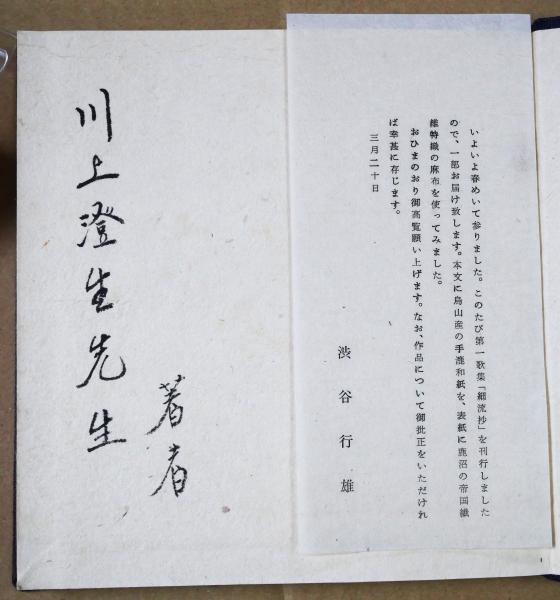 いよいよ春めいて参りました。このたび第一歌集「細流抄」を刊行しました
ので、一部お届け致します。本文に烏山産の手漉和紙を、表紙に鹿沼の帝国繊
維特織の麻布を使ってみました。
おひまのおり御高覧願い上げます。なお、作品について御批正をいただけれ
ば幸甚に存じます。
三月二十日
渋谷行雄
川上澄生先生
著者